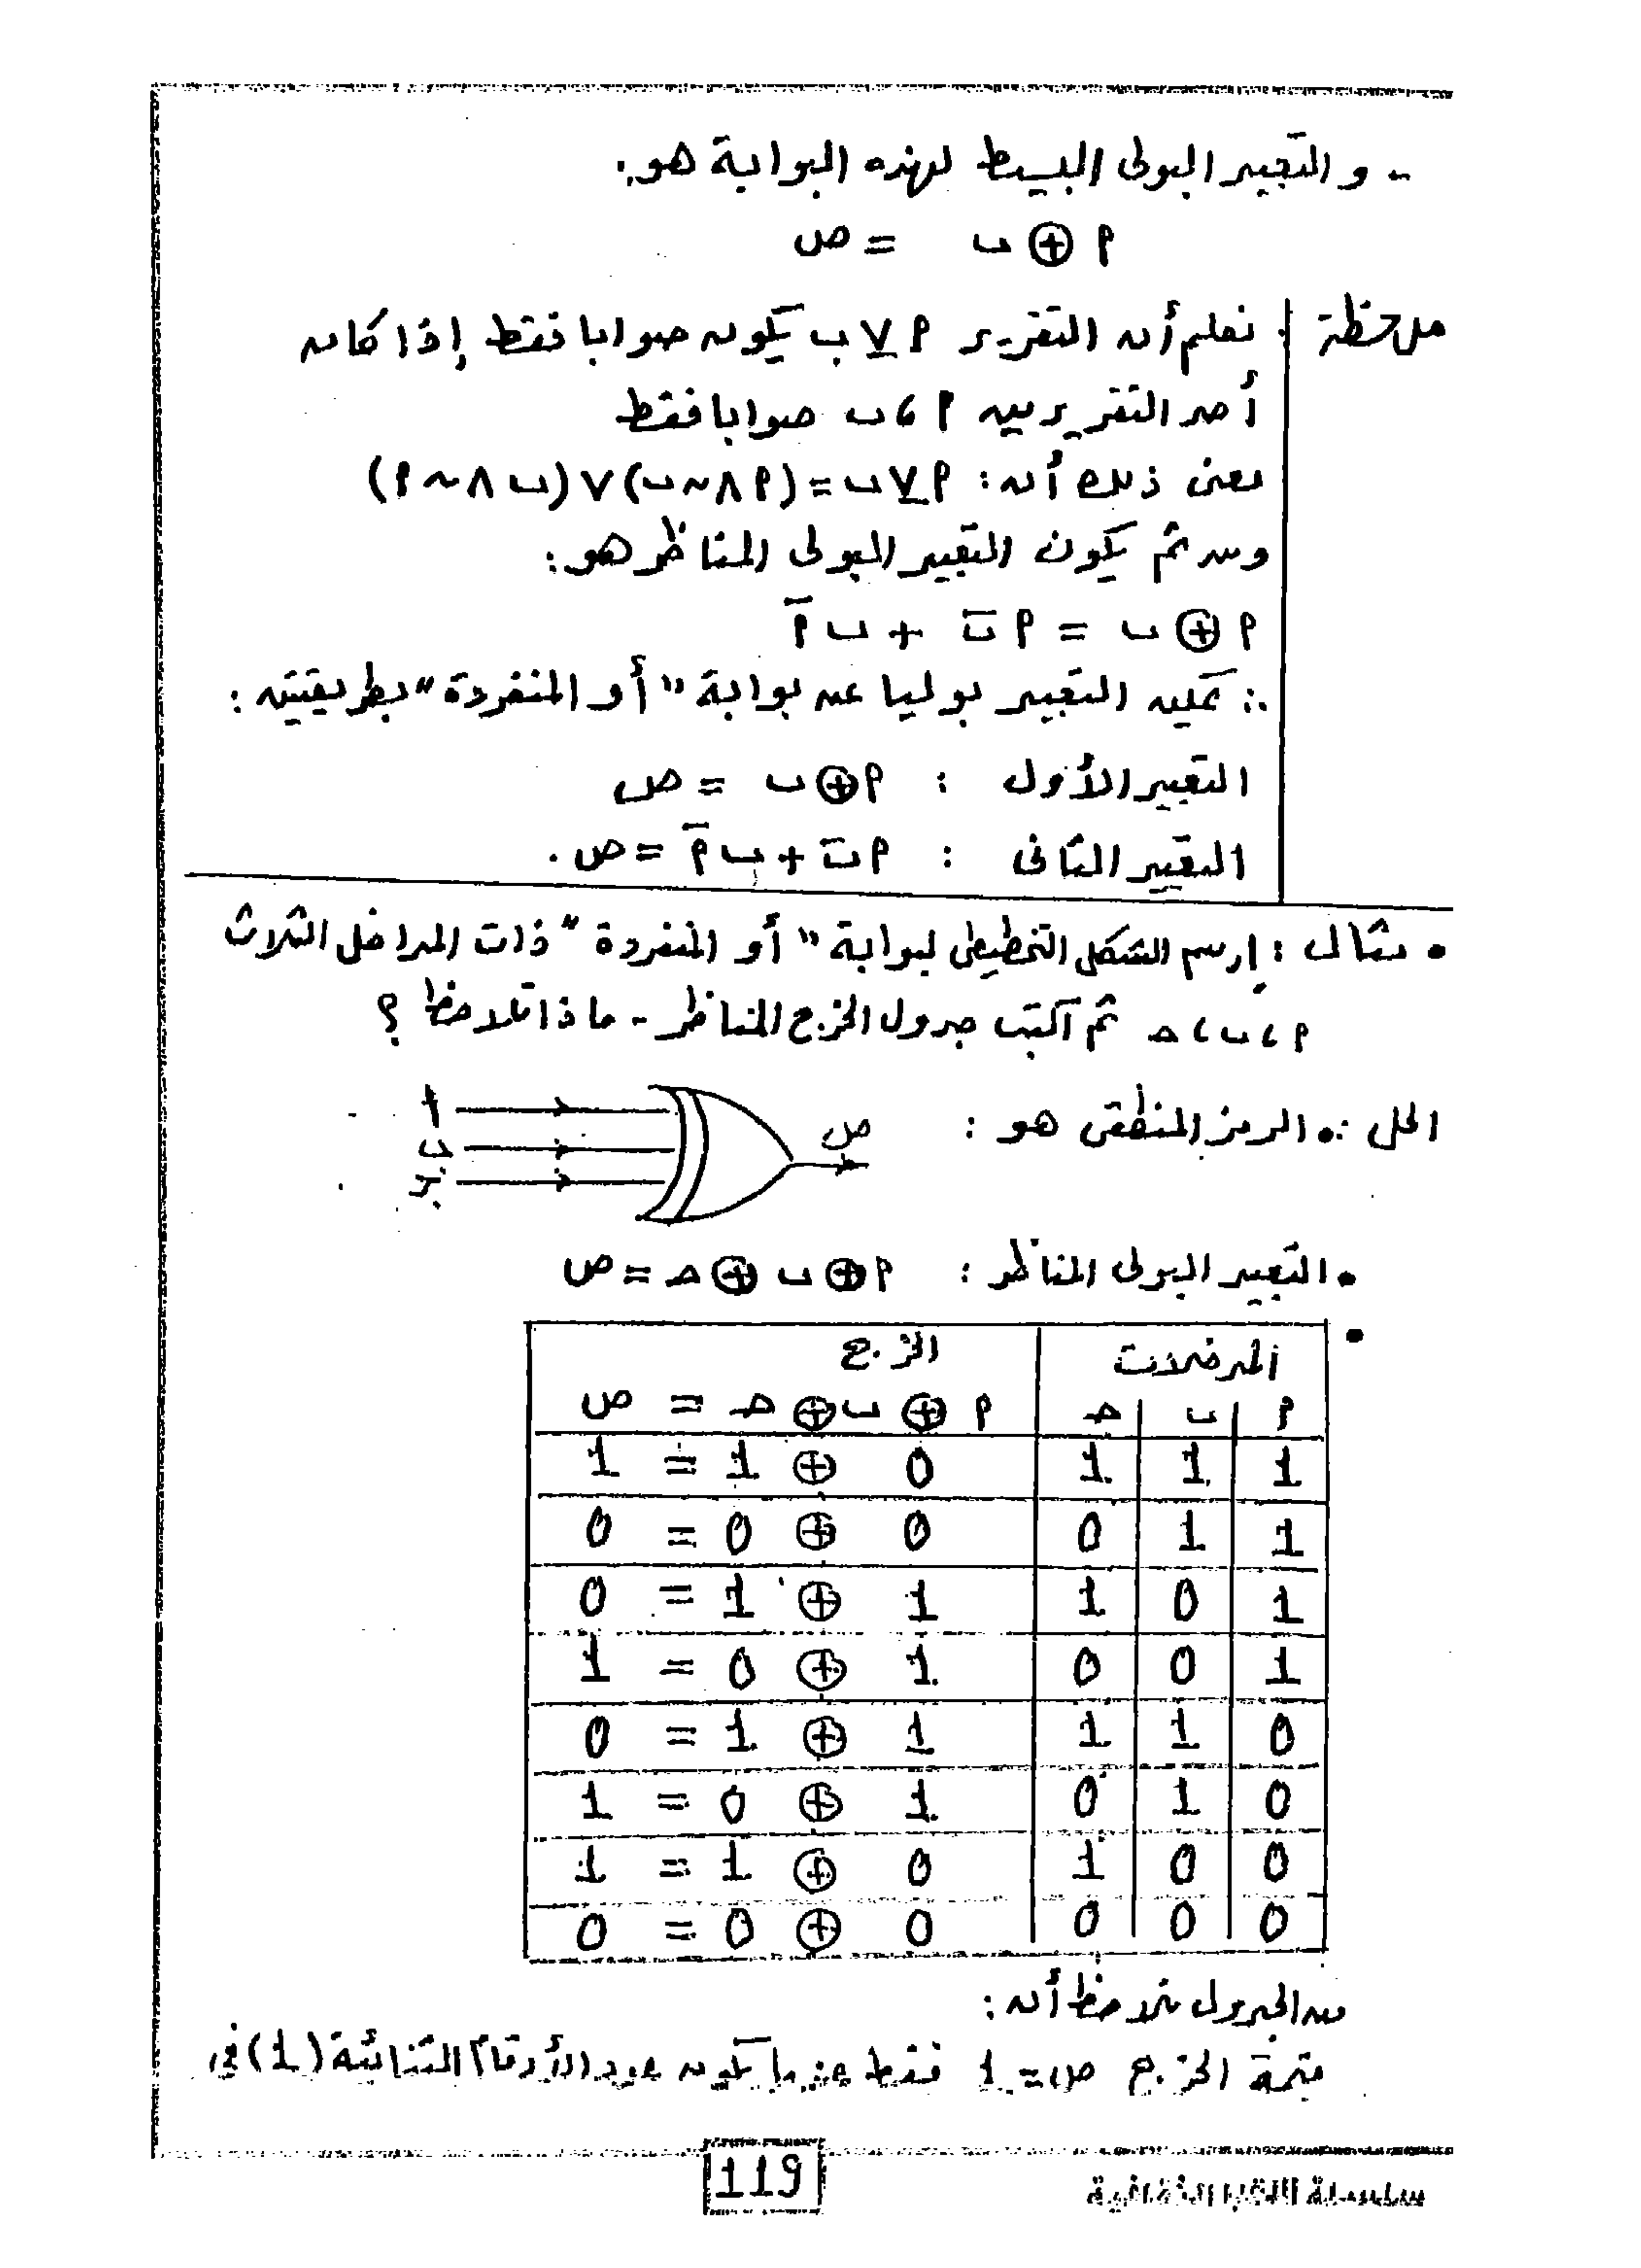 - والتعبير البولى البسيط لهذه البوابة هو:
أ ⊕ ب = ص
ملاحظة : نعلم أن التقرير أ ⊻ ب يكون صوابا فقط إذا كان
أحد التقريرين أ ، ب صوابا فقط
معنى ذلك أن : أ ⊻ ب = (أ ∧ ~ ب) ∨ (ب ∧ ~ أ)
ومن ثم يكون التعبير البولى المناظر هو :
أ ⊕ ب = أ ب̅ + ب أ̅
∴ يمكن التعبير بوليا عن بوابة "أو المنفردة" بطريقيتين :
التعبير الأول : أ ⊕ ب = ص
التعبير الثانى : أ ب̅ + ب أ̅ = ص .
• مثال : إرسم الشكل التخطيطى لبوابة "أو المنفردة" ذات المداخل الثلاث
أ ، ب ، حـ ثم اكتب جدول الخرج المناظر - ماذا تلاحظ ؟
الحل : • الرمز المنطقى هو :
أ
ب
جـ
ص
• التعبير البولى المناظر : أ ⊕ ب ⊕ حـ = ص
• المدخلات الخرج
أ ب حـ أ ⊕ ب ⊕ حـ = ص
1 1 1 0 ⊕ 1 = 1
1 1 0 0 ⊕ 0 = 0
1 0 1 1 ⊕ 1 = 0
1 0 0 1 ⊕ 0 = 1
0 1 1 1 ⊕ 1 = 0
0 1 0 1 ⊕ 0 = 1
0 0 1 0 ⊕ 1 = 1
0 0 0 0 ⊕ 0 = 0
من الجدول نلاحظ أن :
قيمة الخرج ص = 1 فقط عندما يكون عدد الأرقام الثنائية (1) فى
119
سلسلة